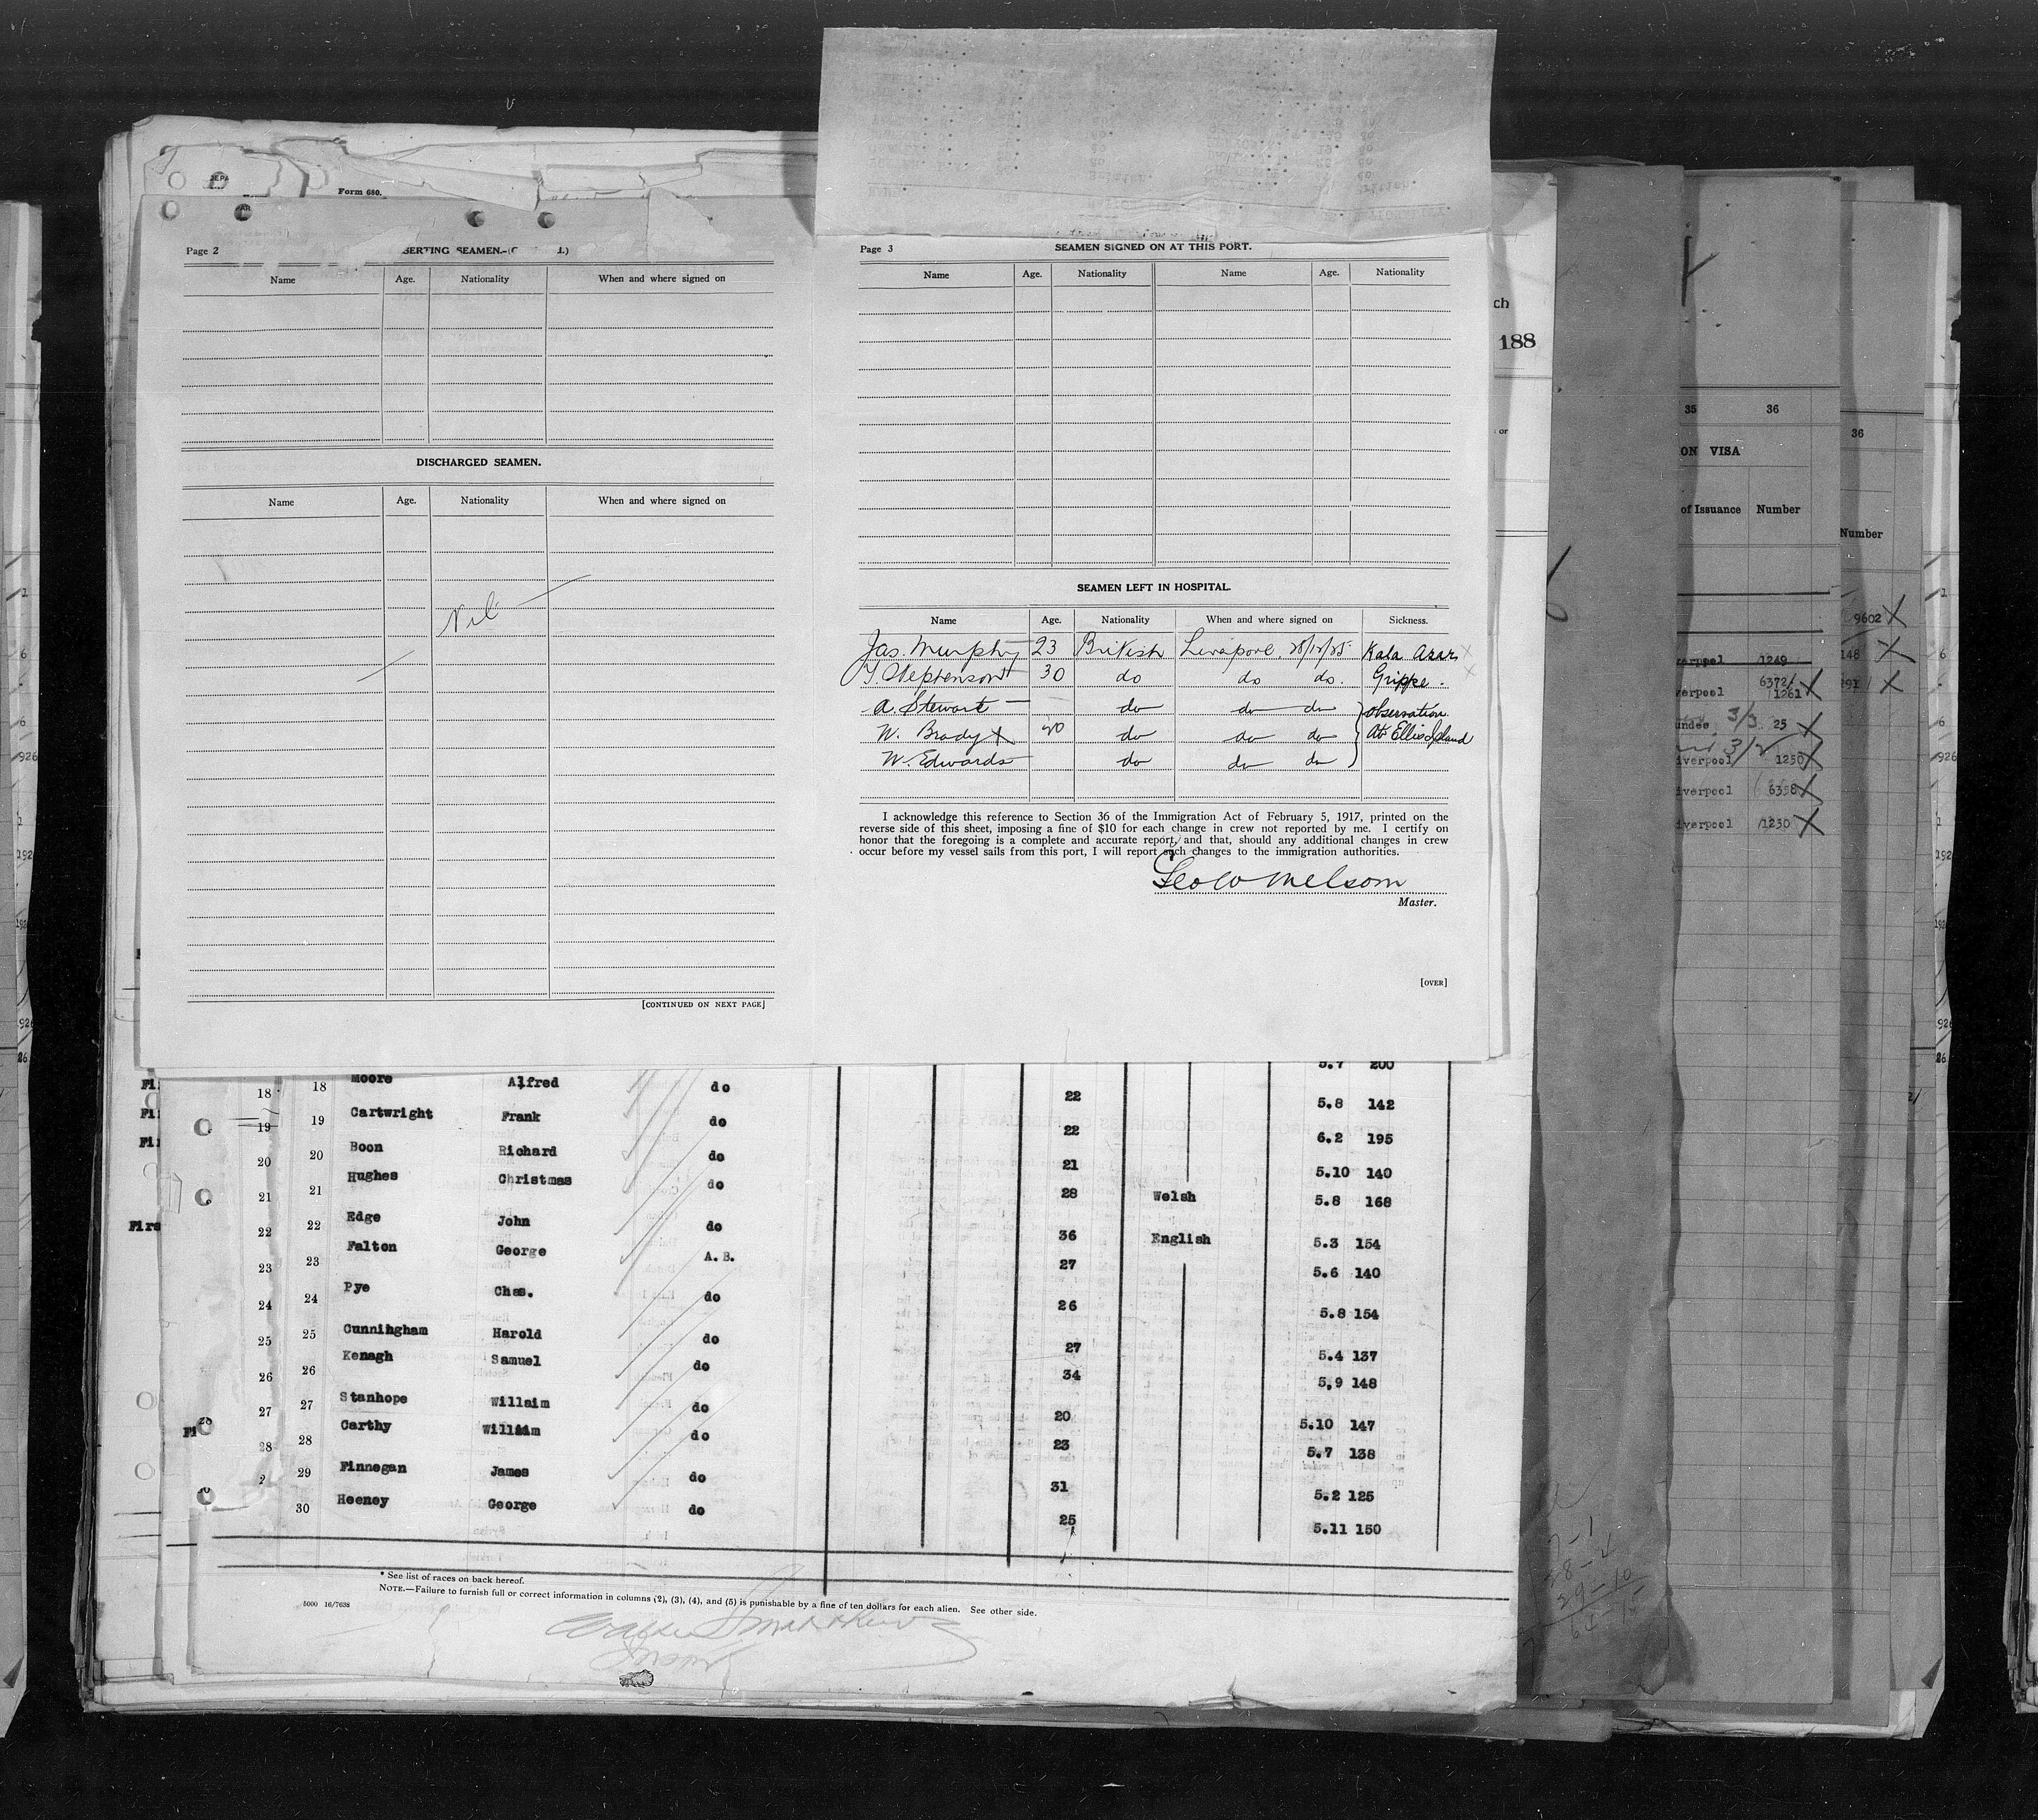 Form 680.
Page 2
SERTING SEAMEN.
Name Age. Nationality When and where signed on
DISCHARGED SEAMEN.
Name Age. Nationality When and where signed on
Nil
[CONTINUED ON NEXT PAGE]
Page 3
SEAMEN SIGNED ON AT THIS PORT.
Name Age. Nationality Name Age. Nationality
SEAMEN LEFT IN HOSPITAL.
Name Age. Nationality When and where signed on Sickness.
Jas. Murphy 23 British Liverpool. Kala Azar
Stephenson 30 do do do. Grippe.
A. Stewart — do do do observation
W. Brady X do do do At Ellis Island
W. Edwards do do do
I acknowledge this reference to Section 36 of the Immigration Act of February 5, 1917, printed on the
reverse side of this sheet, imposing a fine of $10 for each change in crew not reported by me. I certify on
honor that the foregoing is a complete and accurate report, and that, should any additional changes in crew
occur before my vessel sails from this port, I will report such changes to the immigration authorities.
Geo W Melsom
Master.
[OVER]
ch
188
35 36
ON VISA
of Issuance Number
verpool 1249
6372/
verpool 1261 X
undee 3/3 25 X
3/2
iverpool 1250 X
iverpool 6358 X
iverpool 1230 X
36
Number
9602 X
148 X
291 X
5.7 200
18 18 Moore Alfred do 22 5.8 142
19 19 Cartwright Frank do 22 6.2 195
20 20 Boon Richard do 21 5.10 140
21 21 Hughes Christmas do 28 Welsh 5.8 168
22 22 Edge John do 36 English 5.3 154
23 23 Falton George A.B. 27 5.6 140
24 24 Pye Chas. do 26 5.8 154
25 25 Cunningham Harold do 27 5.4 137
26 26 Kenagh Samuel do 34 5.9 148
27 27 Stanhope Willaim do 20 5.10 147
28 28 Carthy William do 23 5.7 138
29 Finnegan James do 31 5.2 125
30 Heeney George do 25 5.11 150
* See list of races on back hereof.
NOTE.—Failure to furnish full or correct information in columns (2), (3), (4), and (5) is punishable by a fine of ten dollars for each alien. See other side.
5000 16/7638